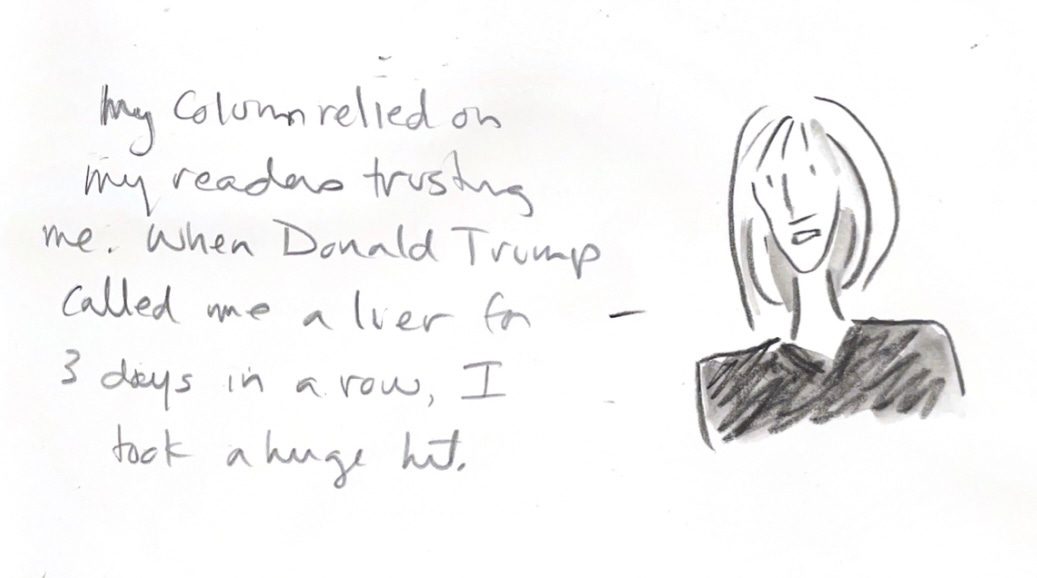 my Column relied on
my readers trusting
me. When Donald Trump
called me a liver for
3 days in a row, I
took a huge hit.